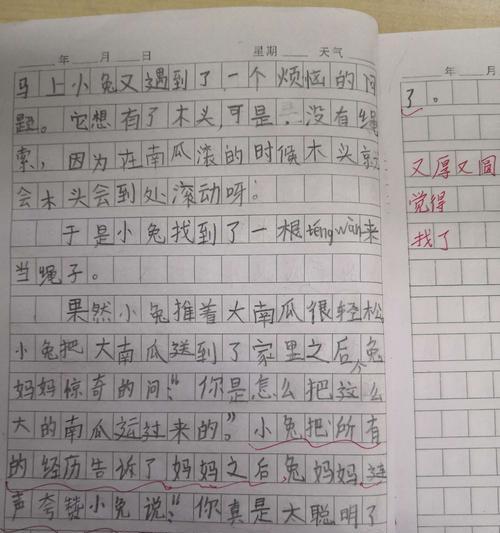 年 月 日 星期 天气
马上小兔又遇到了一个烦恼的问
题。它想有了木头,可是,没有绳
索,因为在南瓜滚的时候木头就
会木头会到处滚动呀!
于是小兔找到了一根téng wàn来
当绳子。
果然小兔推着大南瓜很轻松
小兔把大南瓜送到了家里之后,兔
妈妈惊奇的问:“你是怎么把这么
大的南瓜运过来的。”小兔把所有
的经历告诉了妈妈之后,兔妈妈连
声夸赞小兔说:“你真是太聪明了
年 月
了。
又厚又圆
觉得
找了